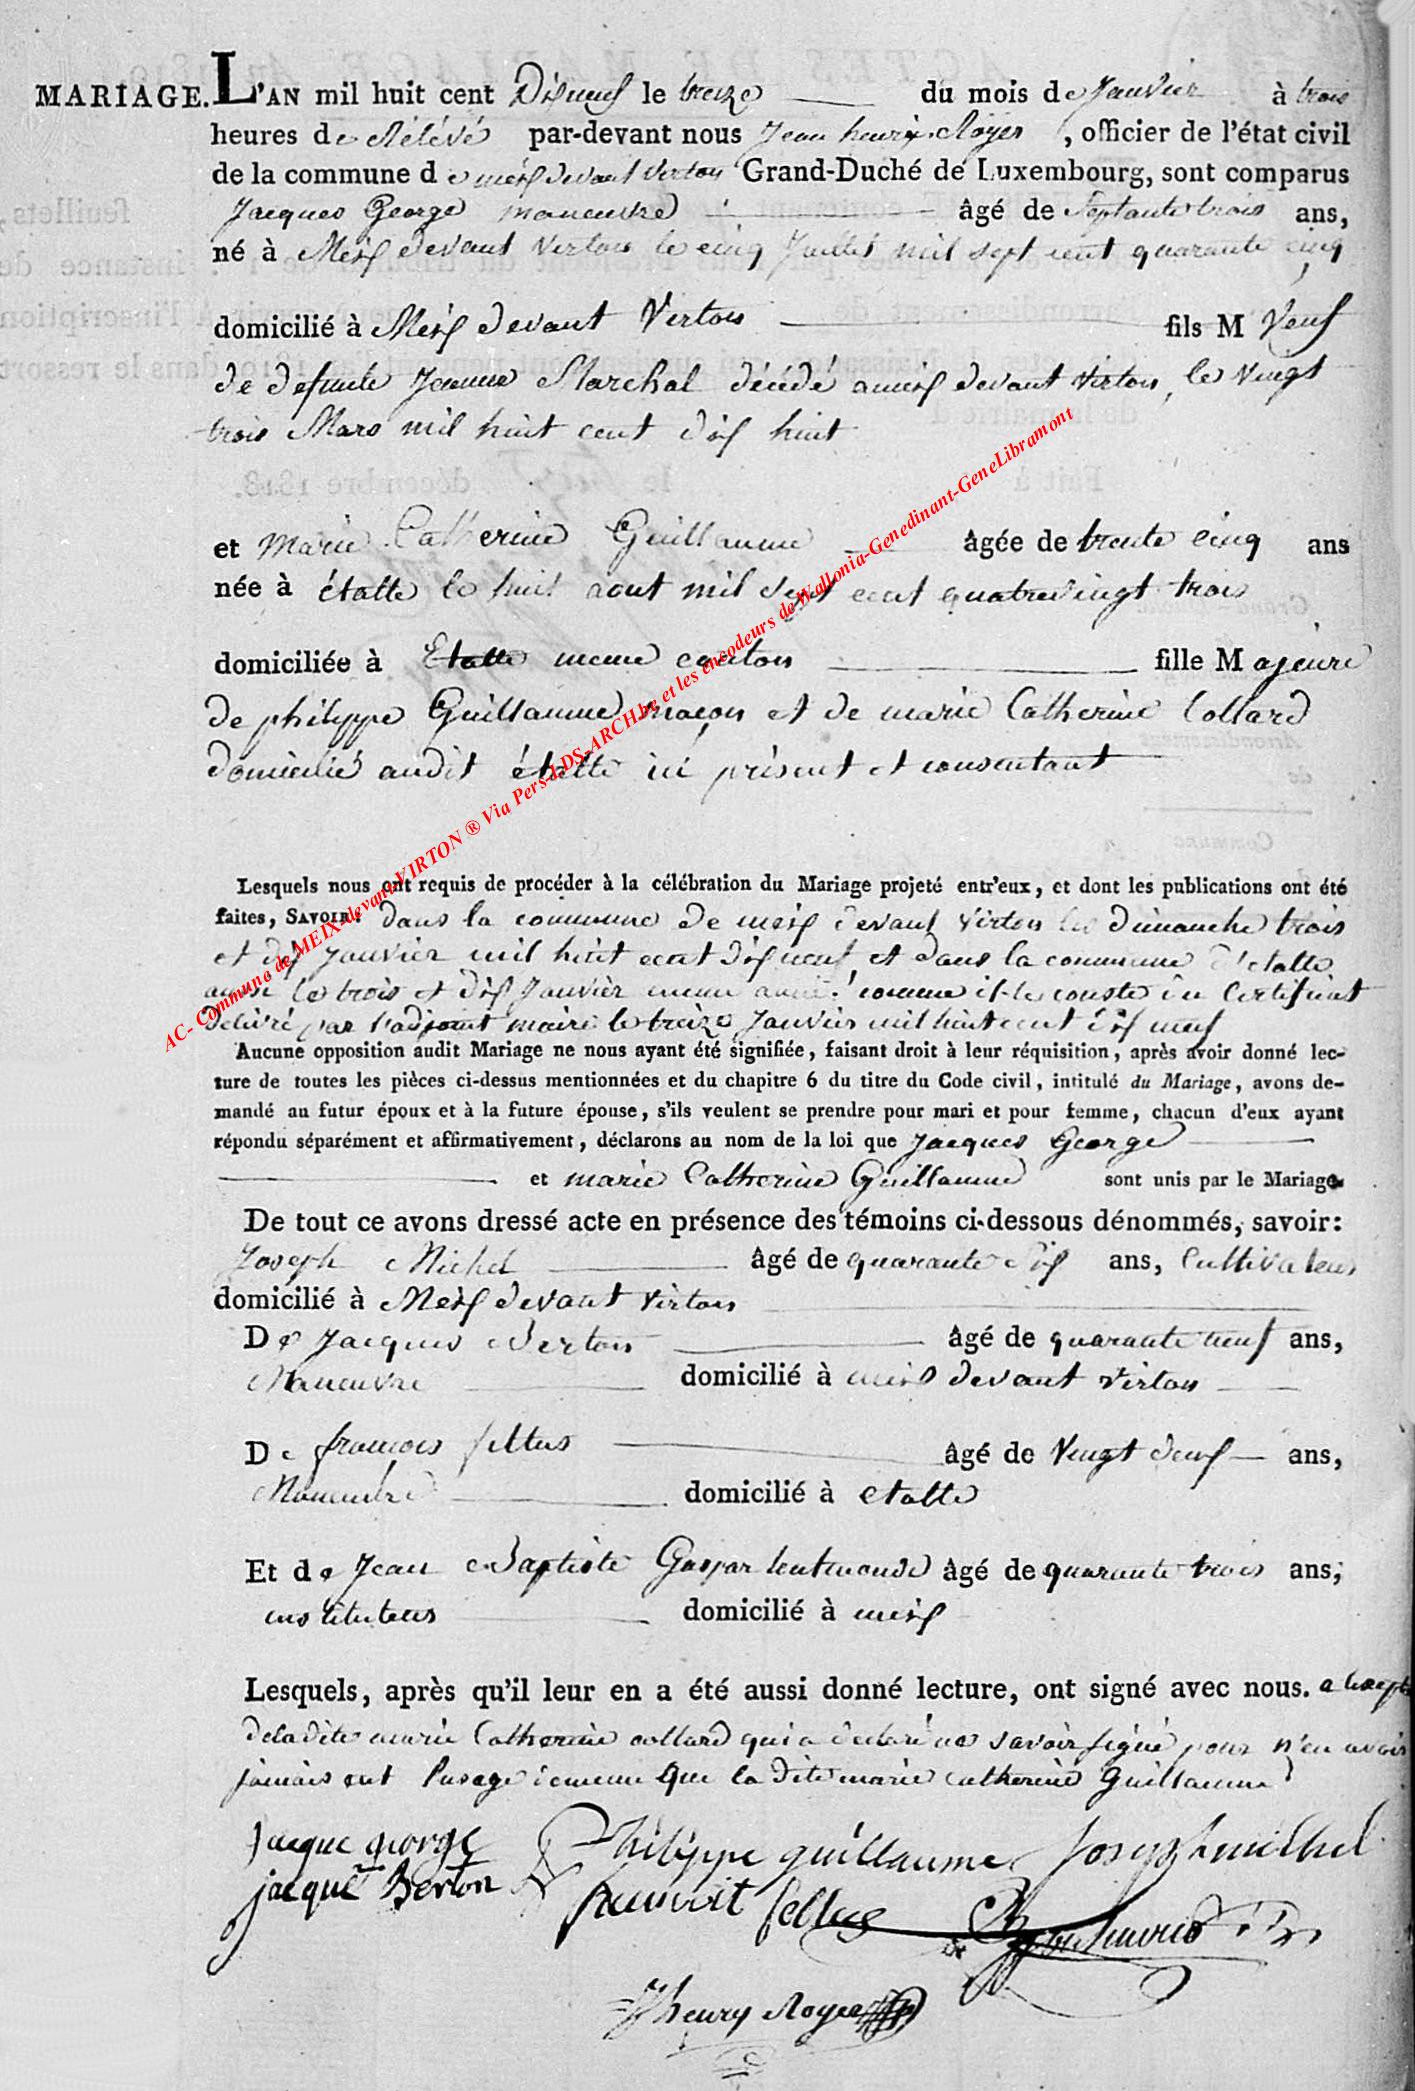 MARIAGE. L'AN mil huit cent Dixneuf le treize du mois de Janvier à trois
heures de Rélévé par-devant nous Jean henri Royer, officier de l'état civil
de la commune de meix devant virton Grand-Duché de Luxembourg, sont comparus
Jacques George maneuvre âgé de Septante trois ans,
né à Meix devant virton le cinq Juillet mil sept cent quarante cinq
domicilié à Meix devant Virton fils M Veuf
de defunte Jeanne Marchal décédé a meix devant virton, le vingt
trois Mars mil huit cent dix huit
et Marie Catherine Guillaume âgée de trente cinq ans
née à étalle le huit aout mil sept cent quatrevingt trois
domiciliée à Etalle meme canton fille Majeure
de philippe Guillaume maçon et de marie Catherine Collard
domicilié audit étalle ici présent et consentant
Lesquels nous ont requis de procéder à la célébration du Mariage projeté entr'eux, et dont les publications ont été
faites, SAVOIR: dans la commune de meix devant virton les dimanche trois
et dix Janvier mil huit cent dix neuf et dans la commune d'étalle
aussi le trois et dix Janvier meme année comme il le conste du Certificat
délivré par l'adjoint maire le treize Janvier mil huit cent dix neuf
Aucune opposition audit Mariage ne nous ayant été signifiée, faisant droit à leur réquisition, après avoir donné lec-
ture de toutes les pièces ci-dessus mentionnées et du chapitre 6 du titre du Code civil, intitulé du Mariage, avons de-
mandé au futur époux et à la future épouse, s'ils veulent se prendre pour mari et pour femme, chacun d'eux ayant
répondu séparément et affirmativement, déclarons au nom de la loi que Jacques George
et marie Catherine Guillaume sont unis par le Mariage
De tout ce avons dressé acte en présence des témoins ci-dessous dénommés, savoir:
Joseph Michel âgé de quarante six ans, Cultivateur
domicilié à Meix devant virton
De Jacques Berton âgé de quarante neuf ans,
Maneuvre domicilié à meix devant virton
De francois fellus âgé de Vingt deux ans,
Maneuvre domicilié à étalle
Et de Jean Baptiste Gaspar âgé de quarante trois ans,
instituteur domicilié à meix
Lesquels, après qu'il leur en a été aussi donné lecture, ont signé avec nous. a lexepti
dela dite marie Catherine collard qui a declaré ne savoir signé pour n'en avoir
jamais eut l'usage de meme que la dite marie catherine guillaume
jacque george Philippe guillaume Joseph michel
jacque Berton fellus
J henry Royer
AC- Commune de MEIX-devant-VIRTON ® Via Pers-LDS-ARCH.be et les encodeurs de Wallonia-Genedinant-GeneLibramont